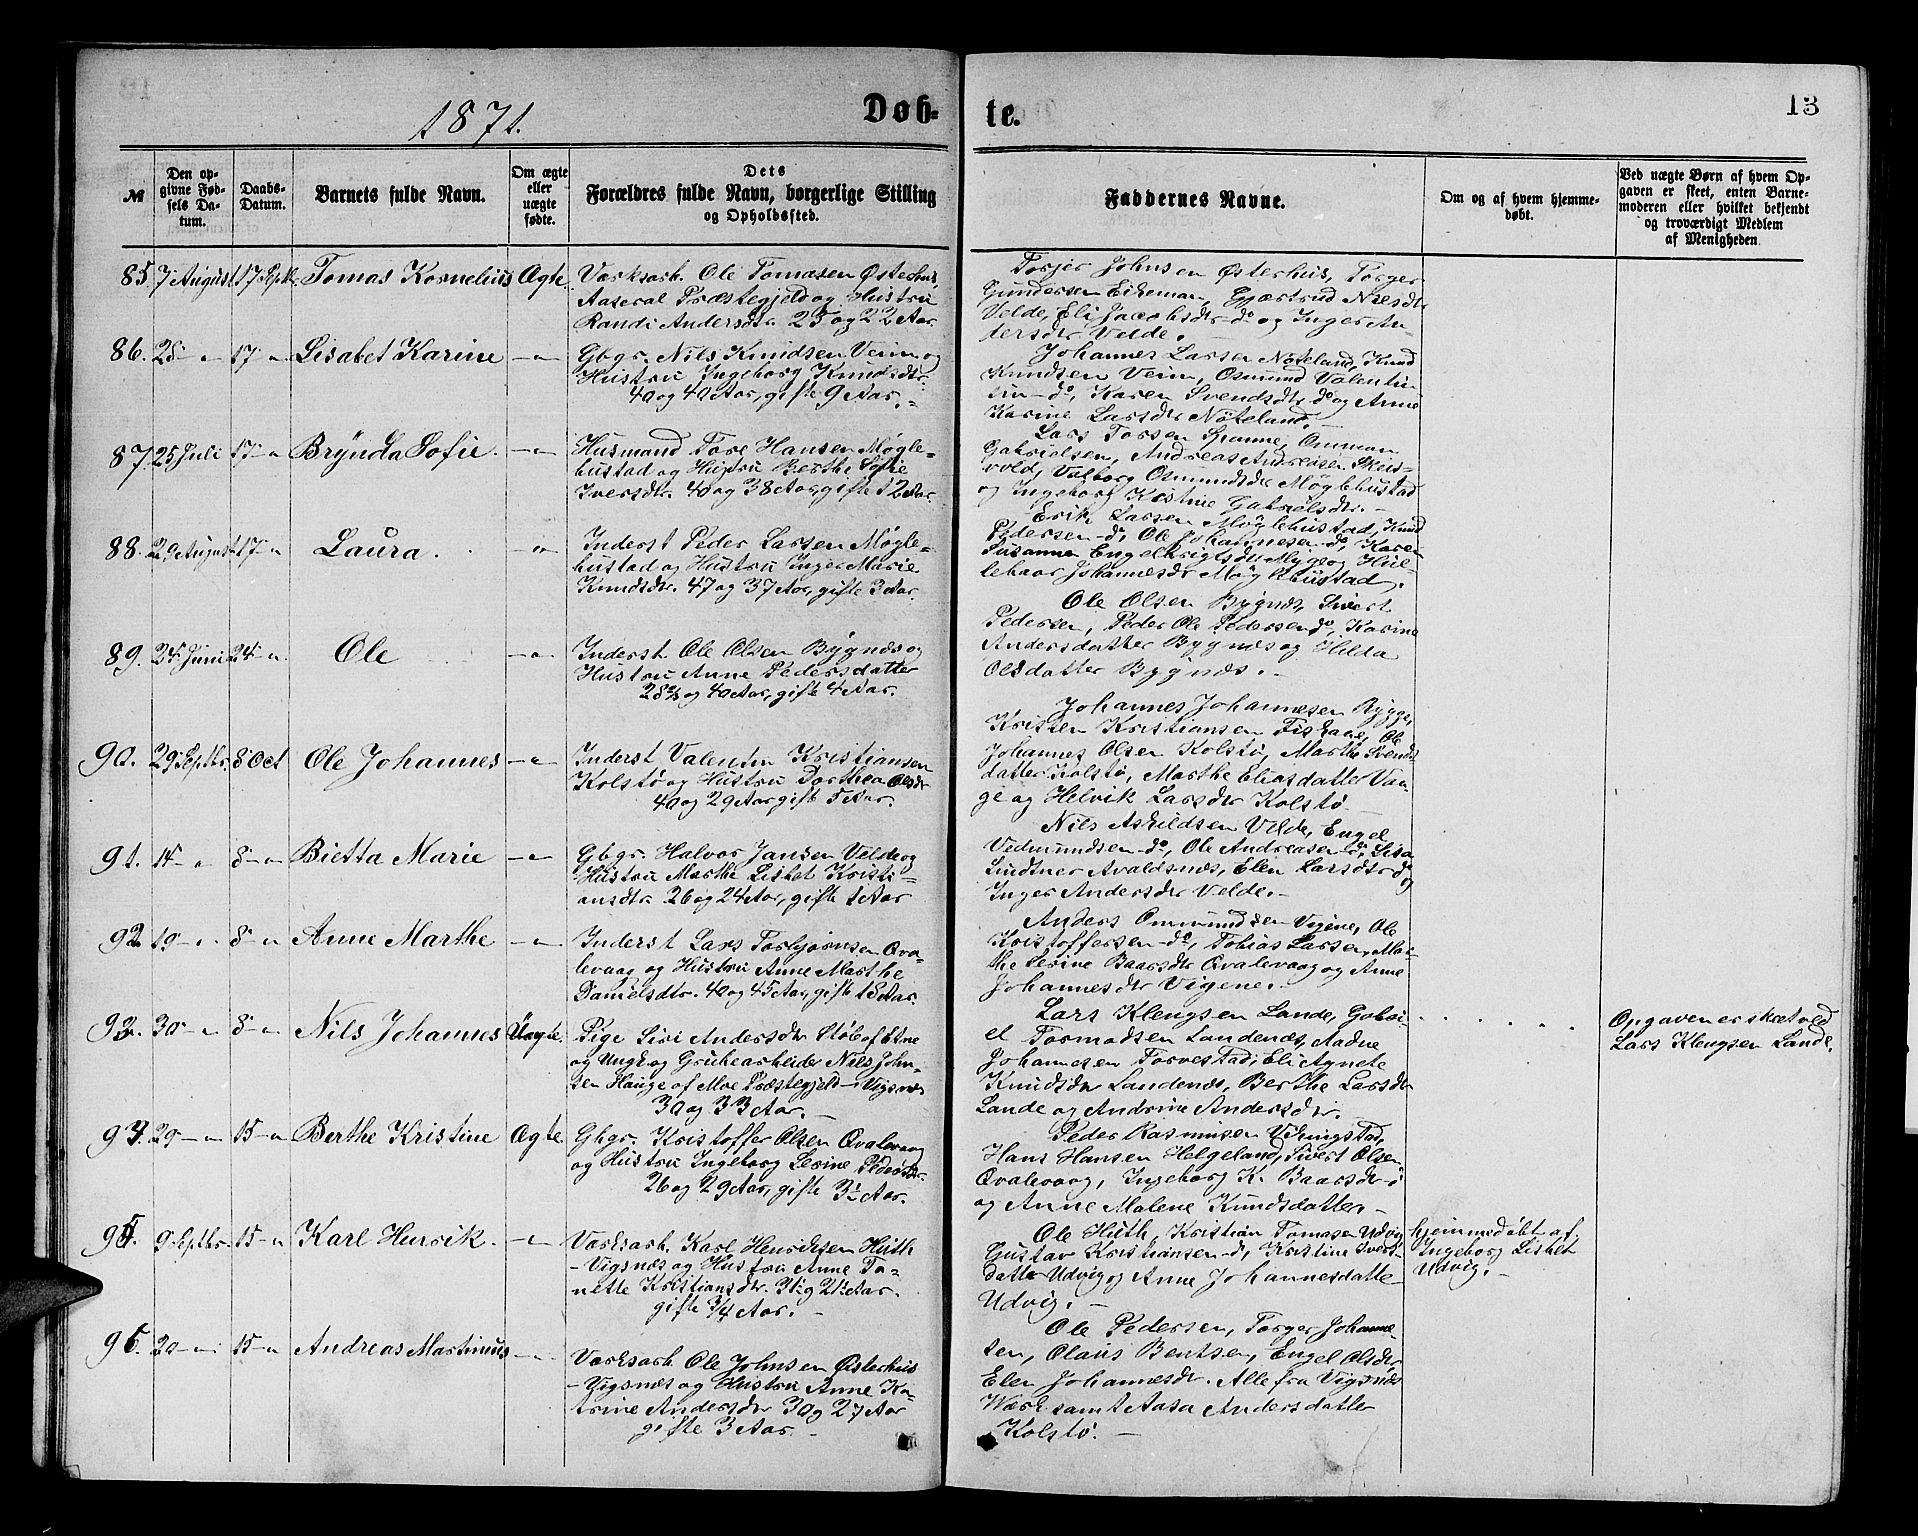 1871.
Døb-
te.
13
№
Den op-
givne Fød-
sels Da-
tum.
Daabs-
Datum.
Barnets fulde Navn.
Om ægte
eller
uægte
fødte.
Dets
Forældres fulde Navn, borgerlige Stilling
og Opholdssted.
Faddernes Navne.
Om og af hvem hjemme-
døbt.
Ved uægte Børn af hvem Op-
gaven er skeet, enten Barne-
moderen eller hvilket bekjendt
og troværdigt Medlem
af Menigheden.
85. 7 August 17 Septbr. Tomas Kornelius Ægte.
Værksarb. Ole Tomasen Østerhus,
Aaseral Præstegjeld og Hustru
Randi Andersdtr. 25 og 22 Aar.
Torjer Johnsen Østerhus, Torger
Gundersen Eikeman, Gjærtrud Nilsdtr
Velde, Eli Jacobsdtr do og Inger An-
dersdtr Velde.
86. 28 - " 17 - " Lisabet Karine - " -
Gbgr. Nils Knudsen Veim og
Hustru Ingeborg Knudsdtr.
40 og 40 Aar, gifte 9 Aar.
Johannes Larsen Nøteland, Knud
Knudsen Veim, Osmund Valentin-
sen - do, Karen Svendsdtr do og Anne
Karine Larsdtr Nøteland.
87. 25 Juli 17 - " Brynda Sofie. - " -
Husmand Tore Hansen Møgle-
bustad og Hustru Berthe Sofie
Iversdtr. 40 og 38 Aar, gifte 12 Aar.
Lars Torsen Spanne, Omman
Gabrielsen, Andreas Andreasen Skeis-
vold, Valborg Osmundsdtr Møglebustad
og Ingeborg Kristine Gabrielsdtr.
88. 29 August 17 - " Laura. - " -
Inderst Peder Larsen Møgle-
bustad og Hustru Inger Marie
Knudsdtr. 47 og 37 Aar, gifte 3 Aar.
Erik Larsen Møglebustad, Knud
Pedersen - do, Ole Johannesen do, Karen
Susanne Engelbrigtsdtr Myge og Hille-
borg Johannesdtr Møglebustad.
89. 24 Juni 24 - " Ole - " -
Inderst. Ole Olsen Bygnes og
Hustru Anne Pedersdatter
28 og 40 Aar, gifte 4 Aar.
Ole Olsen Bygnes, Sivert
Pedersen, Peder Ole Pedersen do, Karine
Andersdatter Bygnes og Hilda
Olsdatter Bygnes.
90. 29 Septbr. 8 Oct Ole Johannes - " -
Inderst Valentin Kristiansen
Kolstø og Hustru Dorthea Olsdtr
40 og 29 Aar, gift 5 Aar.
Johannes Johannesen Rygge,
Kristen Kristiansen Fiskaae, Ole
Johannes Olsen Kolstø, Marthe Svends-
datter Kolstø, Marthe Eliasdatter Van-
ge og Helvik Larsdtr Kolstø
91. 14 - " 8 - " Bietta Marie - " -
Gbgr. Halvor Jansen Velde og
Hustru Marthe Lisbet Kristi-
ansdtr. 26 og 24 Aar, gifte 1 Aar
Nils Askildsen Velde, Engel
Vedmundsen - do, Ole Andreasen - do, Lisa
Lindtner Avaldsnæs, Elen Larsdtr do
Inger Andersdtr Velde.
92. 19 - " 8 - " Anne Marthe - " -
Inderst Lars Torbjørnsen Qva-
levaag og Hustru Anne Marthe
Danielsdtr. 40 og 45 Aar, gift 18 Aar.
Anders Ommundsen Vigene, Ole
Kristoffersen - do, Tobias Larsen, Mar-
the Serine Baarsdtr Qvalevaag og Anne
Johannesdtr Vigene.
92. 30 - " 8 - " Nils Johannes Uægte.
Pige Siri Andersdtr Støle af Etne
og Ungk. og Grubearbeider Nils John-
sen Hauge af Moe Præstegjeld - Vigsnæs
30 og 33 Aar.
Lars Klengsen Lande, Gabri-
el Tormodsen Landenæs, Aadne
Johannesen Torvestad, Eli Agnete
Knudsdtr Landenæs, Berthe Larsdtr
Lande og Andrine Andersdtr.
Opgaven er skeet ved
Lars Klengsen Lande.
93. 29 - " 15 - " Berthe Kristine Ægte.
Gbgr. Kristoffer Olsen Qvalevaag
og Hustru Ingeborg Serine Pedersdtr.
26 og 29 Aar, gifte 3½ Aar.
Peder Rasmusen Vikingstad,
Hans Hansen Helgeland, Sivert Olsen
Qvalevaag, Ingeborg K. Baarsdtr do
og Anne Malene Knudsdatter.
94. 9 Septbr. 15 - " Karl Henrik. - " -
Værksarb. Karl Henriksen Hüth
- Vigsnæs og Hustru Anne To-
nette Kristiansdtr. 31 og 21 Aar.
gifte 3/4 Aar.
Ole Hüth, Kristian Tomasen Udvig
Gustav Kristiansen - do, Kristine Iverts-
datter Udvig og Anne Johannesdatter
Udvig.
hjemmedøbt af
Ingeborg Lisbet
Udvig.
95. 20 - " 15 - " Andreas Martinius - " -
Værksarb. Ole Johnsen Østerhus
- Vigsnæs og Hustru Anne Ka-
trine Andersdtr 30 og 27 Aar
gifte 3 Aar.
Ole Pedersen, Torger Johanne-
sen, Olaus Bentsen, Engel Olsdtr
Elen Johannesdtr. Alle fra Vigsnæs
Værk samt Aasa Andersdatter
Kolstø.